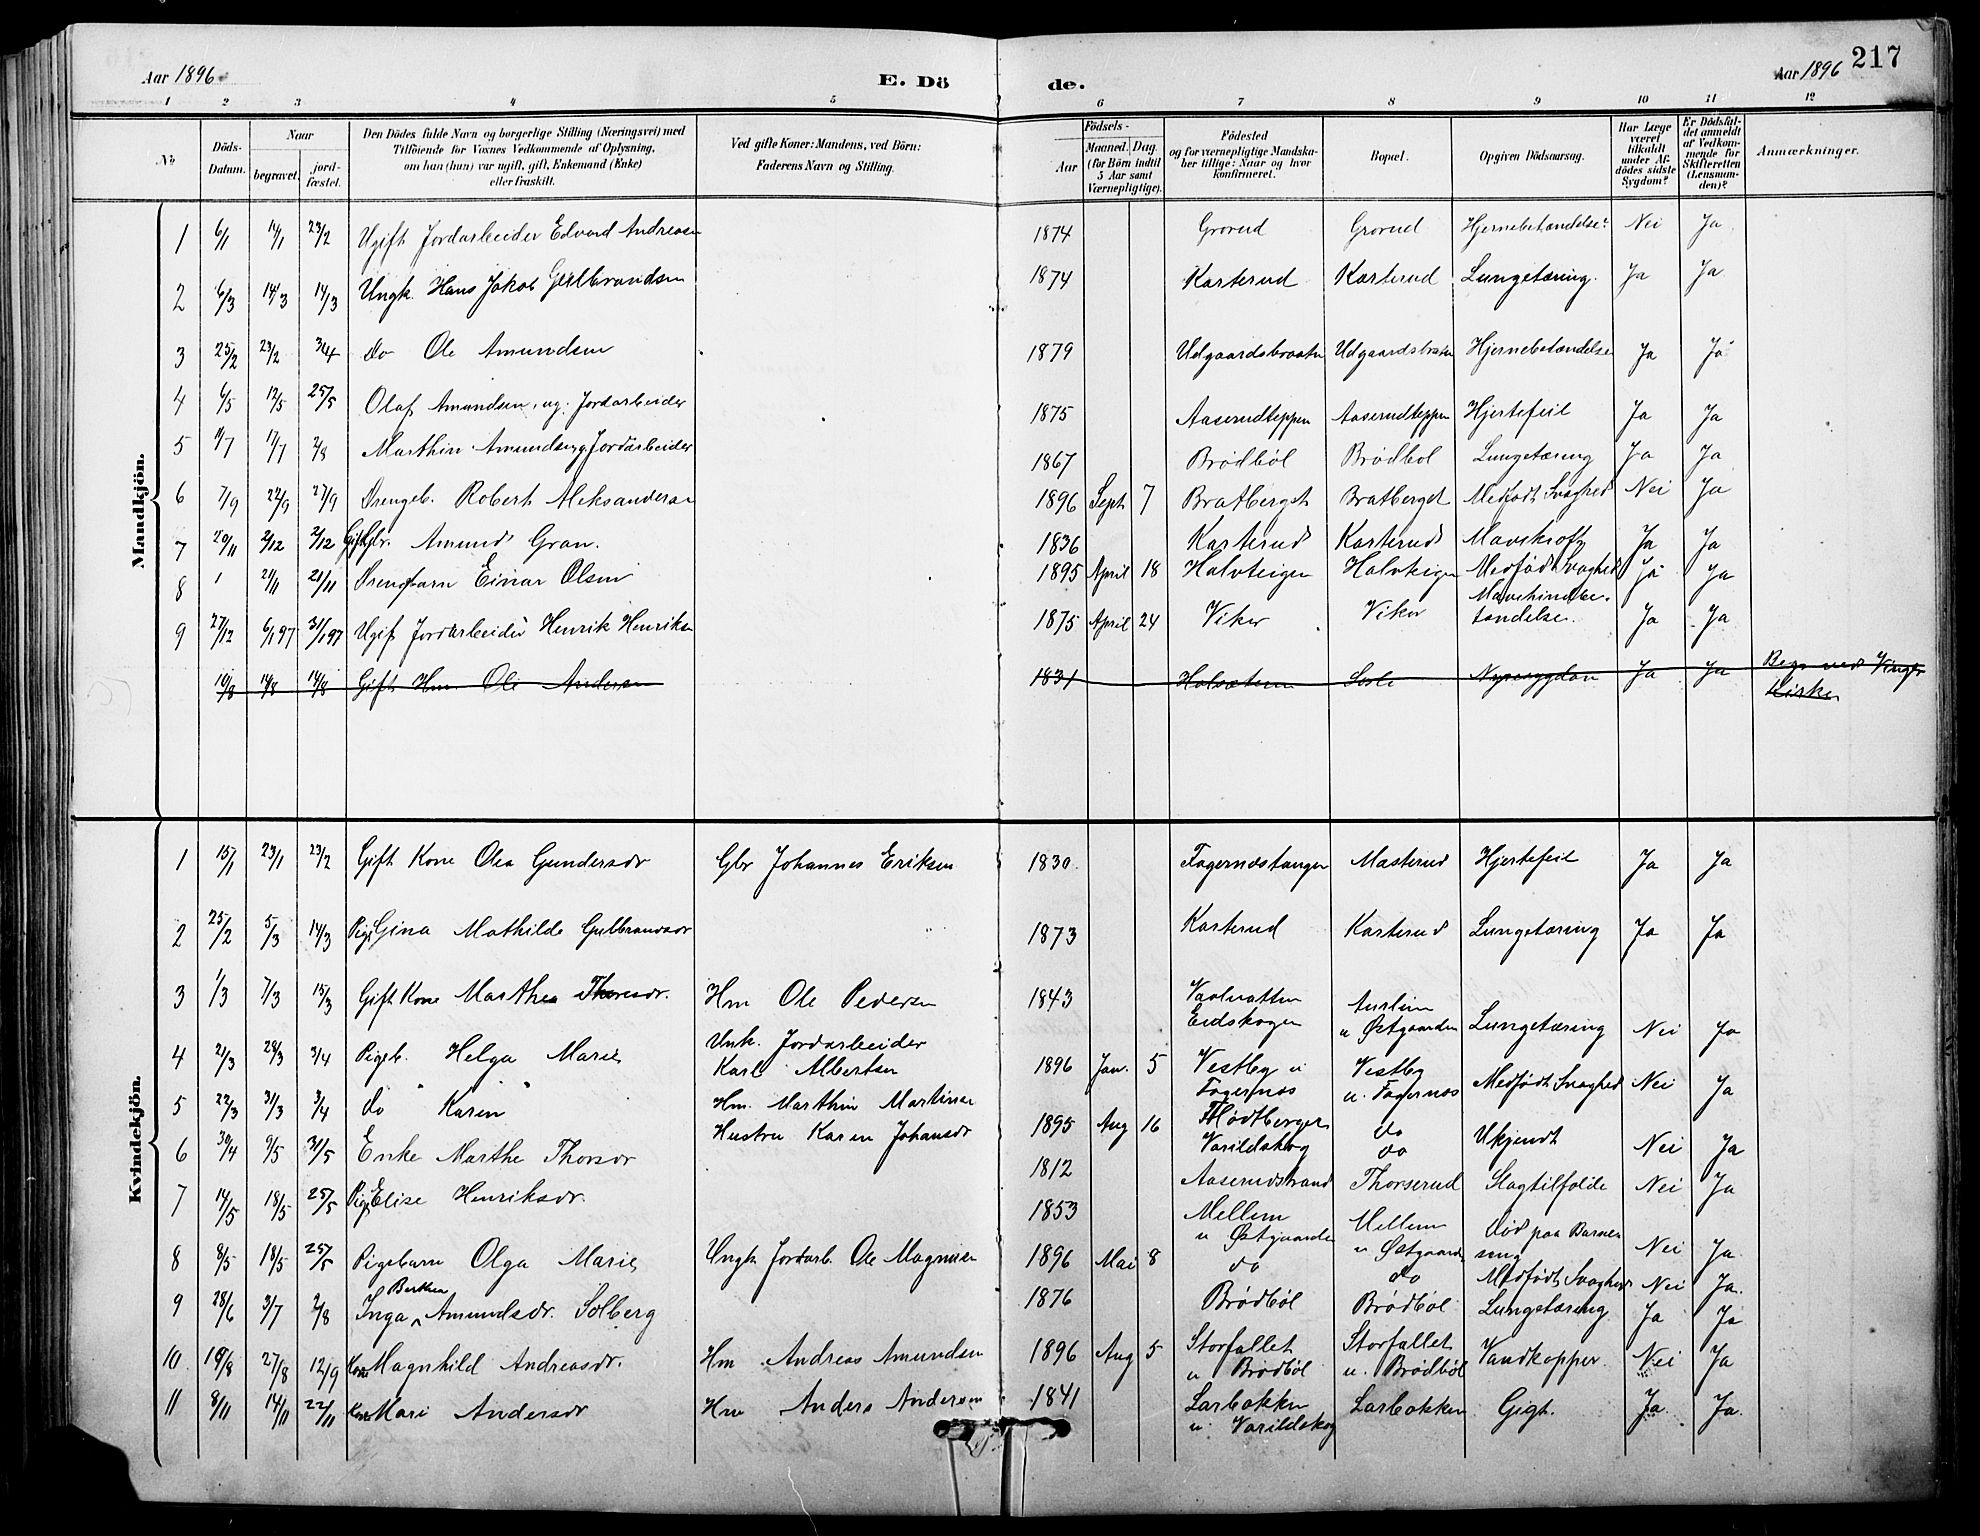 Aar 1896
E. Dö
de.
Aar 1896
217
1 2 3 4 5 6 7 8 9 10 11 12
No
Döds-Datum.
Naar
begravet.
jord-fæstet.
Den Dödes fulde Navn og borgerlige Stilling (Næringsvei) med
Tilföiende for Voxnes Vedkommende af Oplysning,
om han (hun) var ugift, gift, Enkemand (Enke)
eller fraskilt.
Ved gifte Koner: Mandens, ved Börn:
Faderens Navn og Stilling.
Födsels-
Aar
Maaned. Dag.
(for Börn indtil
5 Aar samt
Værnepligtige).
Födested
og for værnepligtige Mandska-
ber tillige: Naar og hvor
konfirmeret.
Bopæl.
Opgiven Dödsaarsag.
Har Læge
været
tilkaldt
under Af-
dödes sidste
Sygdom?
Er Dödsfal-
det anmeldt
af Vedkom-
mende for
Skifteretten
(Lensman-
den)?
Anmærkninger.
Mandkjön.
1 6/1 14/1 23/2 Ugift Jordarbeider Edvard Andreasen 1874 Grorud Grorud Hjernebetændelse Nei Ja
2 6/3 14/3 14/3 Ungk. Hans Jakob Gulbrandsen 1874 Karterud Karterud Lungetæring. Ja Ja
3 25/2 23/2 3/4 do Ole Amundsen 1879 Udgaardsbraaten Udgaardsbraten Hjernebetændelse Ja Ja
4 6/5 12/5 25/5 Olaf Amundsen, ug. Jordarbeider 1875 Aaserudteppen Aaserudteppen Hjertefeil Ja Ja
5 11/7 17/7 2/8 Marthin Amundsen ug Jordarbeider 1867 Brødbøl Brødbøl Lungetæring Ja Ja
6 7/9 22/9 27/9 Drengeb. Robert Aleksandersen 1896 Sept 7 Bratberget Bratberget Medfødt Svaghed Nei Ja
7 20/11 2/12 2/12 Gift Gbr. Amund Gran. 1836 Karterud Karterud Mavekræft Ja Ja
8 21/11 21/11 Drengebarn Einar Olsen 1895 April 18 Halvteigen Halvteigen Medfødt Svaghed Ja Ja
9 27/12 6/1 97 31/1 97 Ugift Jordarbeider Henrik Henriksen 1875 April 24 Viker Viker Mavehindebe-
tændelse. Ja Ja
10/8 14/8 14/8 Gift Hm Ole Andersen 1831 Nyresygdom Ja Ja Begr ved Vinger
Kirke
Kvindekjön.
1 15/1 23/1 23/2 Gift Kone Olea Gundersdr Gbr Johannes Eriksen 1830. Fagernæstangen Masterud Hjertefeil Ja Ja
2 25/2 5/3 14/3 Pige Gina Mathilde Gulbrandsdr 1873 Karterud Karterud Lungetæring Ja Ja
3 1/3 7/3 15/3 Gift Kone Marthea Thoresdr. Hm Ole Pedersen 1843 Eidskogen u Østgaarden Lungetæring Nei Ja
4 2/3 28/3 3/4 Pigeb. Helga Marie Unk. Jordarbeider
Karl Albertsen 1896 Jan. 5 Vestby u
Fagernæs Vestby
u. Fagernæs Medfødt Svaghed Nei Ja
5 22/3 31/3 3/4 do " Karen " Hm. Marthin Martinsen
Hustru Karen Johansdr 1895 Aug 16 Flødtberget
Varildskog do
do Ukjendt Nei Ja
6 30/4 9/5 31/5 Enke Marthe Thorsdr 1812 Aaserudstrand Thorserud Slagtilfælde Nei Ja
7 14/5 18/5 25/5 Pige Elise Henriksdr. 1853 Mellem
u Østgaarden Mellem
u Østgaarden Død paa Barsel
seng Nei Ja
8 8/5 18/5 25/5 Pigebarn Olga Marie Ungk Jordarb. Ole Magnusen 1896 Mai 8 do do Medfødt Svaghed Nei Ja.
9 28/6 3/7 2/8 Inga Amundsdr. Solberg 1876 Brødbøl Brødbøl Lungetæring Ja Ja
10 18/8 27/8 12/9 Magnhild Andreasdr. Hm Andreas Amundsen 1896 Aug 5 Storfallet
u Brødbøl Storfallet
u. Brødbøl Vandkopper. Nei Ja
11 8/11 14/11 22/11 Kone Mari Andersdr Hm Anders Andersen 1841 Larbakken
u Varildskog Larbakken Gigt. Ja. Ja.